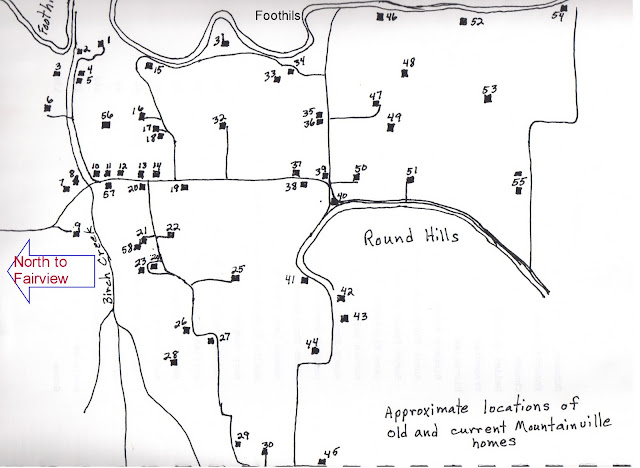 Foothil
Foothils
46
52
54
1
2
31
3
4
5
15
33
34
48
6
47
53
16
35
56
17
32
36
49
18
10
11
12
13
14
37
39
50
51
8
7
57
20
19
38
55
40
9
21
22
Round Hills
58
North to
Fairview
23
24
Birch Creek
25
41
42
43
26
27
44
28
Approximate locations of
old and current Mountainville
homes
29
30
45